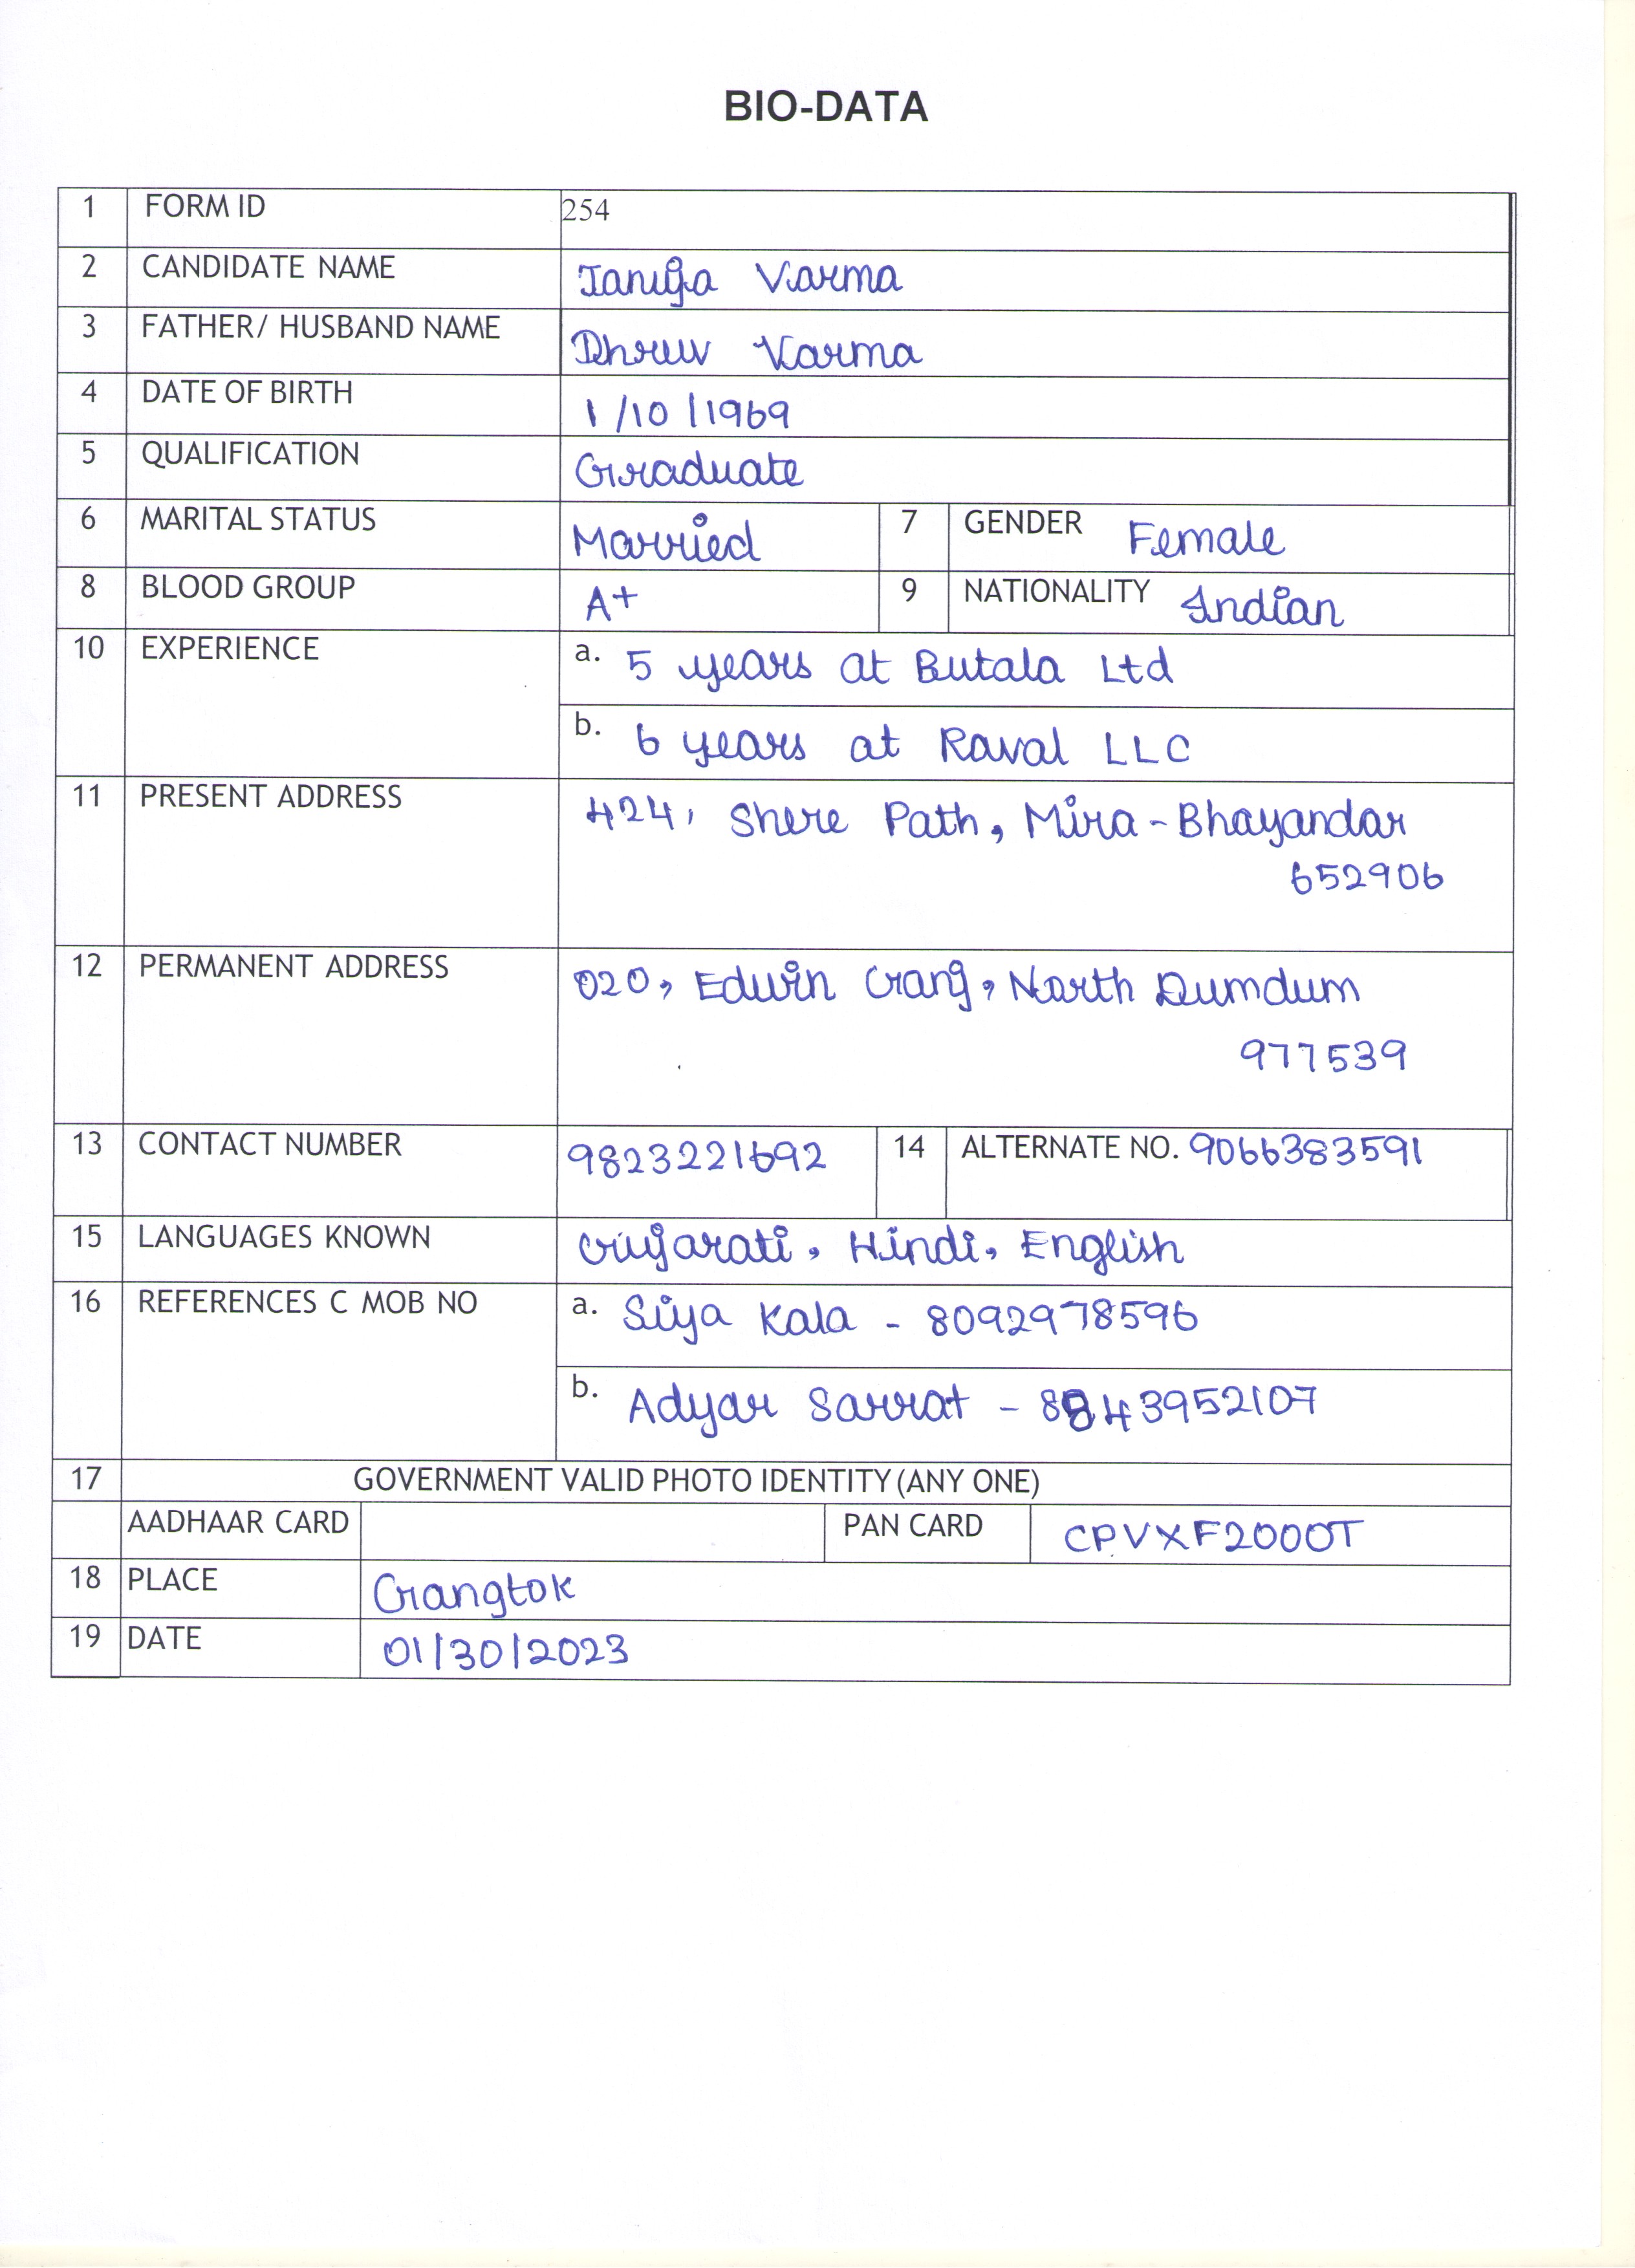 BIO-DATA
1 FORM ID 254
2 CANDIDATE NAME Taniya Varma
3 FATHER/ HUSBAND NAME Dhruv Varma
4 DATE OF BIRTH 1/10/1969
5 QUALIFICATION Graduate
6 MARITAL STATUS Married 7 GENDER Female
8 BLOOD GROUP A+ 9 NATIONALITY Indian
10 EXPERIENCE a. 5 years at Butala Ltd
b. 6 years at Raval LLC
11 PRESENT ADDRESS 424, Shere Path, Mira-Bhayandar
652906
12 PERMANENT ADDRESS 020, Edwin Gang, North Dumdum
977539
13 CONTACT NUMBER 9823221692 14 ALTERNATE NO. 9066383591
15 LANGUAGES KNOWN Gujarati, Hindi, English
16 REFERENCES C MOB NO a. Siya Kala - 8092978596
b. Adyar Sarrat - 8843952107
17 GOVERNMENT VALID PHOTO IDENTITY (ANY ONE)
AADHAAR CARD PAN CARD CPVXF2000T
18 PLACE Gangtok
19 DATE 01/30/2023